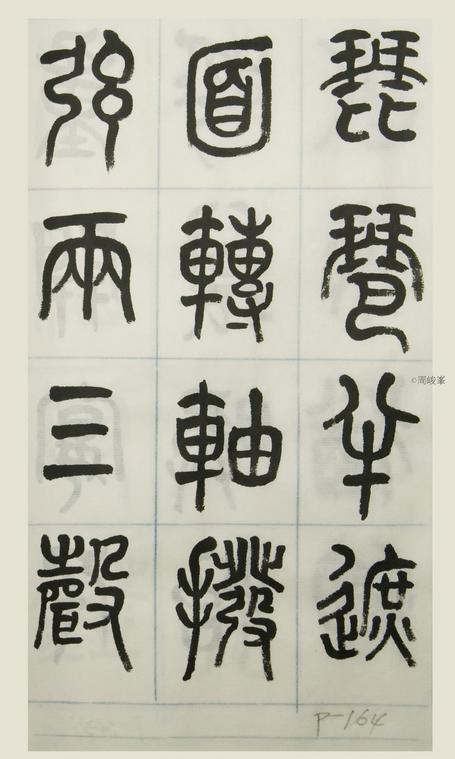 琵琶半遮
面轉軸撥
弦兩三聲
P-164
©周峻峯